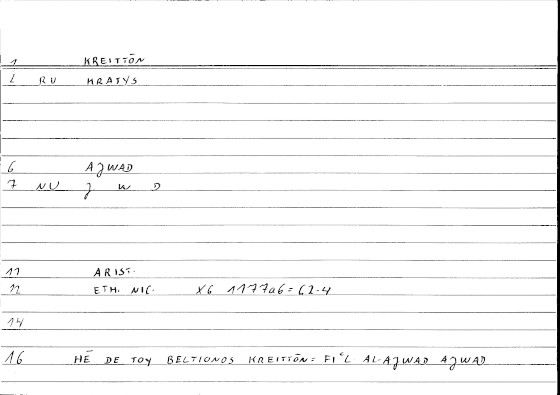 1 KREITTŌN
2 RU KRATYS
6 AJWAD
7 NU J W D
11 ARIST.
12 ETH. NIC. X6 1177a6 = 62.4
14
16 HĒ DE TOY BELTIONOS KREITTŌN = FIʿL AL-AJWAD AJWAD